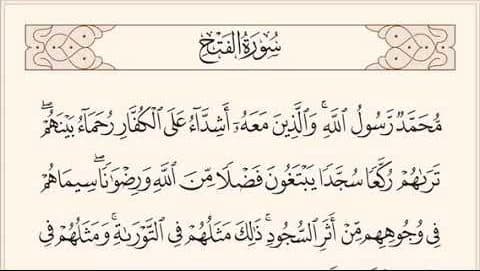 سُورَةُ الفَتْحِ
مُّحَمَّدٌ رَّسُولُ ٱللَّهِۚ وَٱلَّذِينَ مَعَهُۥٓ أَشِدَّآءُ عَلَى ٱلْكُفَّارِ رُحَمَآءُ بَيْنَهُمْۖ
تَرَىٰهُمْ رُكَّعًا سُجَّدًا يَبْتَغُونَ فَضْلًا مِّنَ ٱللَّهِ وَرِضْوَٰنًاۖ سِيمَاهُمْ
فِى وُجُوهِهِم مِّنْ أَثَرِ ٱلسُّجُودِۚ ذَٰلِكَ مَثَلُهُمْ فِى ٱلتَّوْرَىٰةِۚ وَمَثَلُهُمْ فِى